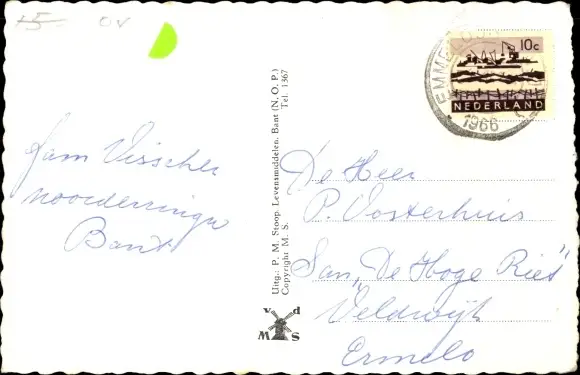 15 ov
fam Visscher
noorderringw
Bant
Uitg.: P. M. Stoop, Levensmiddelen, Bant (N.O.P.)
Tel. 1367
Copyright M. S.
v d
W S
EMMELOORD
1966
10c
NEDERLAND
De Heer
P. Oosterhuis
San, "De Hoge Riet"
Veldwijk
Ermelo